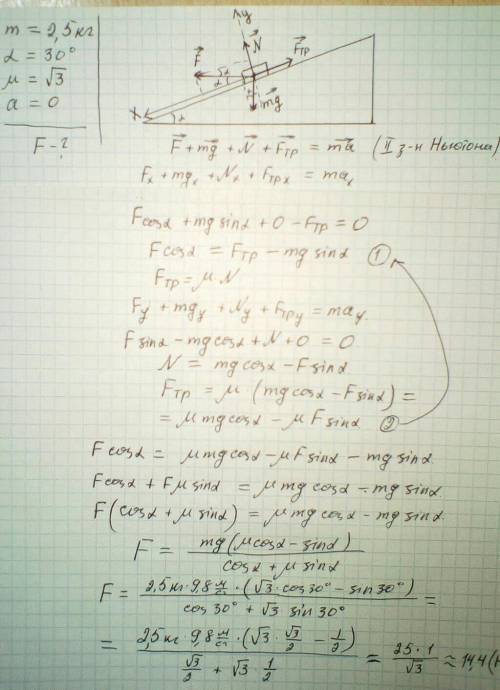 m = 2,5 кг
α = 30°
μ = √3
a = 0
F - ?
y
N
Fтр
F
α
α
mg
x
α
F + mg + N + Fтр = ma (II з-н Ньютона)
Fx + mgx + Nx + Fтрx = max
Fcosα + mg sinα + 0 - Fтр = 0
Fcosα = Fтр - mg sinα ①
Fтр = μ·N
Fy + mgy + Ny + Fтрy = may
Fsinα - mgcosα + N + 0 = 0
N = mgcosα - Fsinα
Fтр = μ·(mgcosα - Fsinα) =
= μmgcosα - μFsinα ②
Fcosα = μmgcosα - μFsinα - mg sinα
Fcosα + Fμsinα = μmg cosα - mg sinα
F(cosα + μ sinα) = μmg cosα - mg sinα.
F = mg(μcosα - sinα) / cosα + μ sinα
F = 2,5кг·9,8 м/с²·(√3·cos30° - sin30°) / cos30° + √3 sin30° =
= 2,5кг·9,8 м/с²·(√3·√3/2 - 1/2) / √3/2 + √3·1/2 = 25·1/√3 ≈ 14,4 (Н